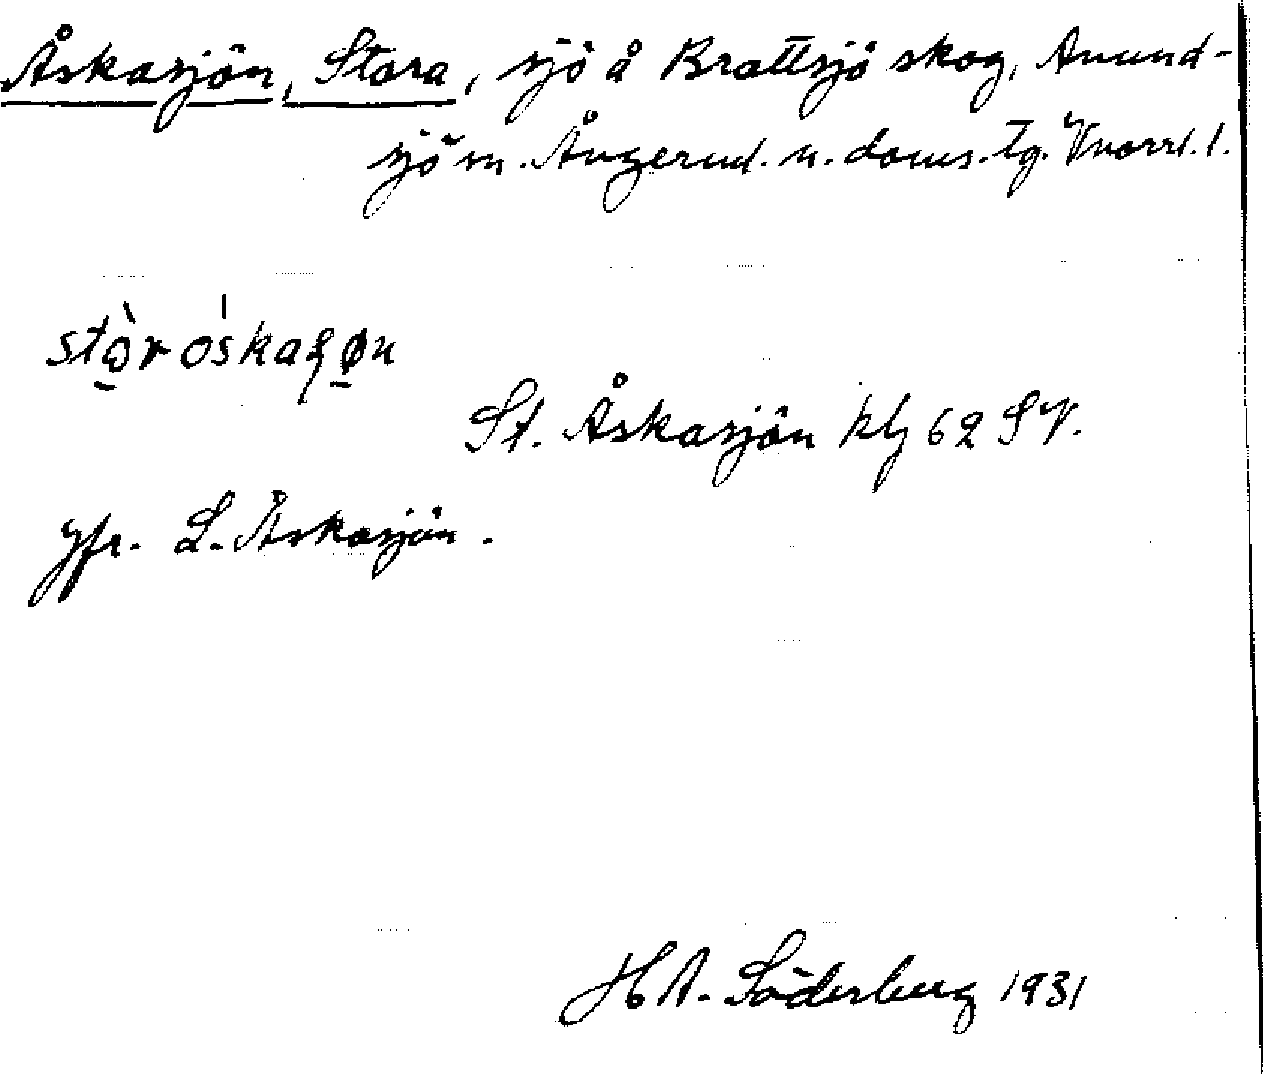 Åskasjön, Stora, sjö å Brattsjö skog, Anund-
sjö sn. Ångerml. n. doms. tg. Vnorrl. l.
St. Åskasjön kbl 62 SV.
Jfr. L. Åskasjön.
H A. Söderberg 1931